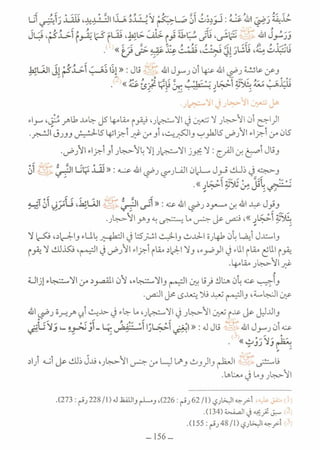 حُذَيْفَةُ رَضِيَ اللهُ عَنْهُ: لَوَدِدْتُ أَنَّ صَاحِبَكُمْ لَا يُشَدِّدُ هَذَا التَّشْدِيدَ، فَلَقَدْ رَأَيْتُنِي أَنَا
وَرَسُولُ اللهِ ﷺ نَتَمَاشَى، فَأَتَى سُبَاطَةَ قَوْمٍ خَلْفَ حَائِطٍ، فَقَامَ كَمَا يَقُومُ أَحَدُكُمْ، فَبَالَ
فَانْتَبَذْتُ مِنْهُ، فَأَشَارَ إِلَيَّ فَجِئْتُ، فَقُمْتُ عِنْدَ عَقِبِهِ حَتَّى فَرَغَ»
وعن عائشة رضي الله عنها أن رسول الله ﷺ قال: «إِذَا ذَهَبَ أَحَدُكُمْ إِلَى الْغَائِطِ
فَلْيَذْهَبْ مَعَهُ بِثَلَاثَةِ أَحْجَارٍ يَسْتَطِيبُ بِهِنَّ فَإِنَّهَا تُجْزِئُ عَنْهُ»
هل تتعين الأحجار في الاستجمار.
الراجح أن الأحجار لا تتعين في الاستجمار، فيقوم مقامها كل جامد طاهر مُنْقٍ، سواء
كان من أجزاء الأرض كالطوب والكبريت، أو من غير أجزائها كالحشيش وورق الشجر.
وقال أصبغ بن الفرج: لا يجوز الاستجمار إلا بالأحجار أو أجزاء الأرض.
وحجته في ذلك قول سلمان الفارسي رضي الله عنه: «لَقَدْ نَهَانَا النَّبِيُّ ﷺ أَنْ
نَسْتَنْجِيَ بِأَقَلَّ مِنْ ثَلَاثَةِ أَحْجَارٍ».
وقول عبد الله بن مسعود رضي الله عنه: «أَتَى النَّبِيُّ ﷺ الْغَائِطَ، فَأَمَرَنِي أَنْ آتِيَهُ
بِثَلَاثَةِ أَحْجَارٍ»، فنص على جنس ما يستنجى به وهو الأحجار.
واستدل أيضا بأن طهارة الحدث والخبث اشتركتا في التطهير بالماء والجماد، فكما لا
يقوم المائع مقام الماء في الوضوء، ولا الجماد مقام أجزاء الأرض في التيمم، فكذلك لا يقوم
غير الأحجار مقامها.
وأُجيب عنه بأن هناك فرقا بين التيمم والاستنجاء، لأن المقصود من الاستنجاء إزالة
عين النجاسة، والتيمم تعبد فلا يتعدى محل النص.
والدليل على عدم تعين الأحجار في الاستجمار، ما جاء في حديث أبي هريرة رضي الله
عنه أن رسول الله ﷺ قال له: «ابْغِنِي أَحْجَارًا أَسْتَنْفِضْ بِهَا ـ أَوْ نَحْوِهِ ـ، وَلَا تَأْتِنِي
بِعَظْمٍ وَلَا رَوْثٍ»
فاستثنى ﷺ العظم والروث وهما ليسا من جنس الأحجار، فدل ذلك على أنه أراد
الأحجار وما في معناها.
(1) متفق عليه، أخرجه البخاري (1/ 62 رقم: 226)، ومسلم واللفظ له (1/ 228 رقم: 273).
(2) سبق تخريجه في الصفحة (134).
(3) أخرجه البخاري (1/ 48 رقم: 155).
– 156 –